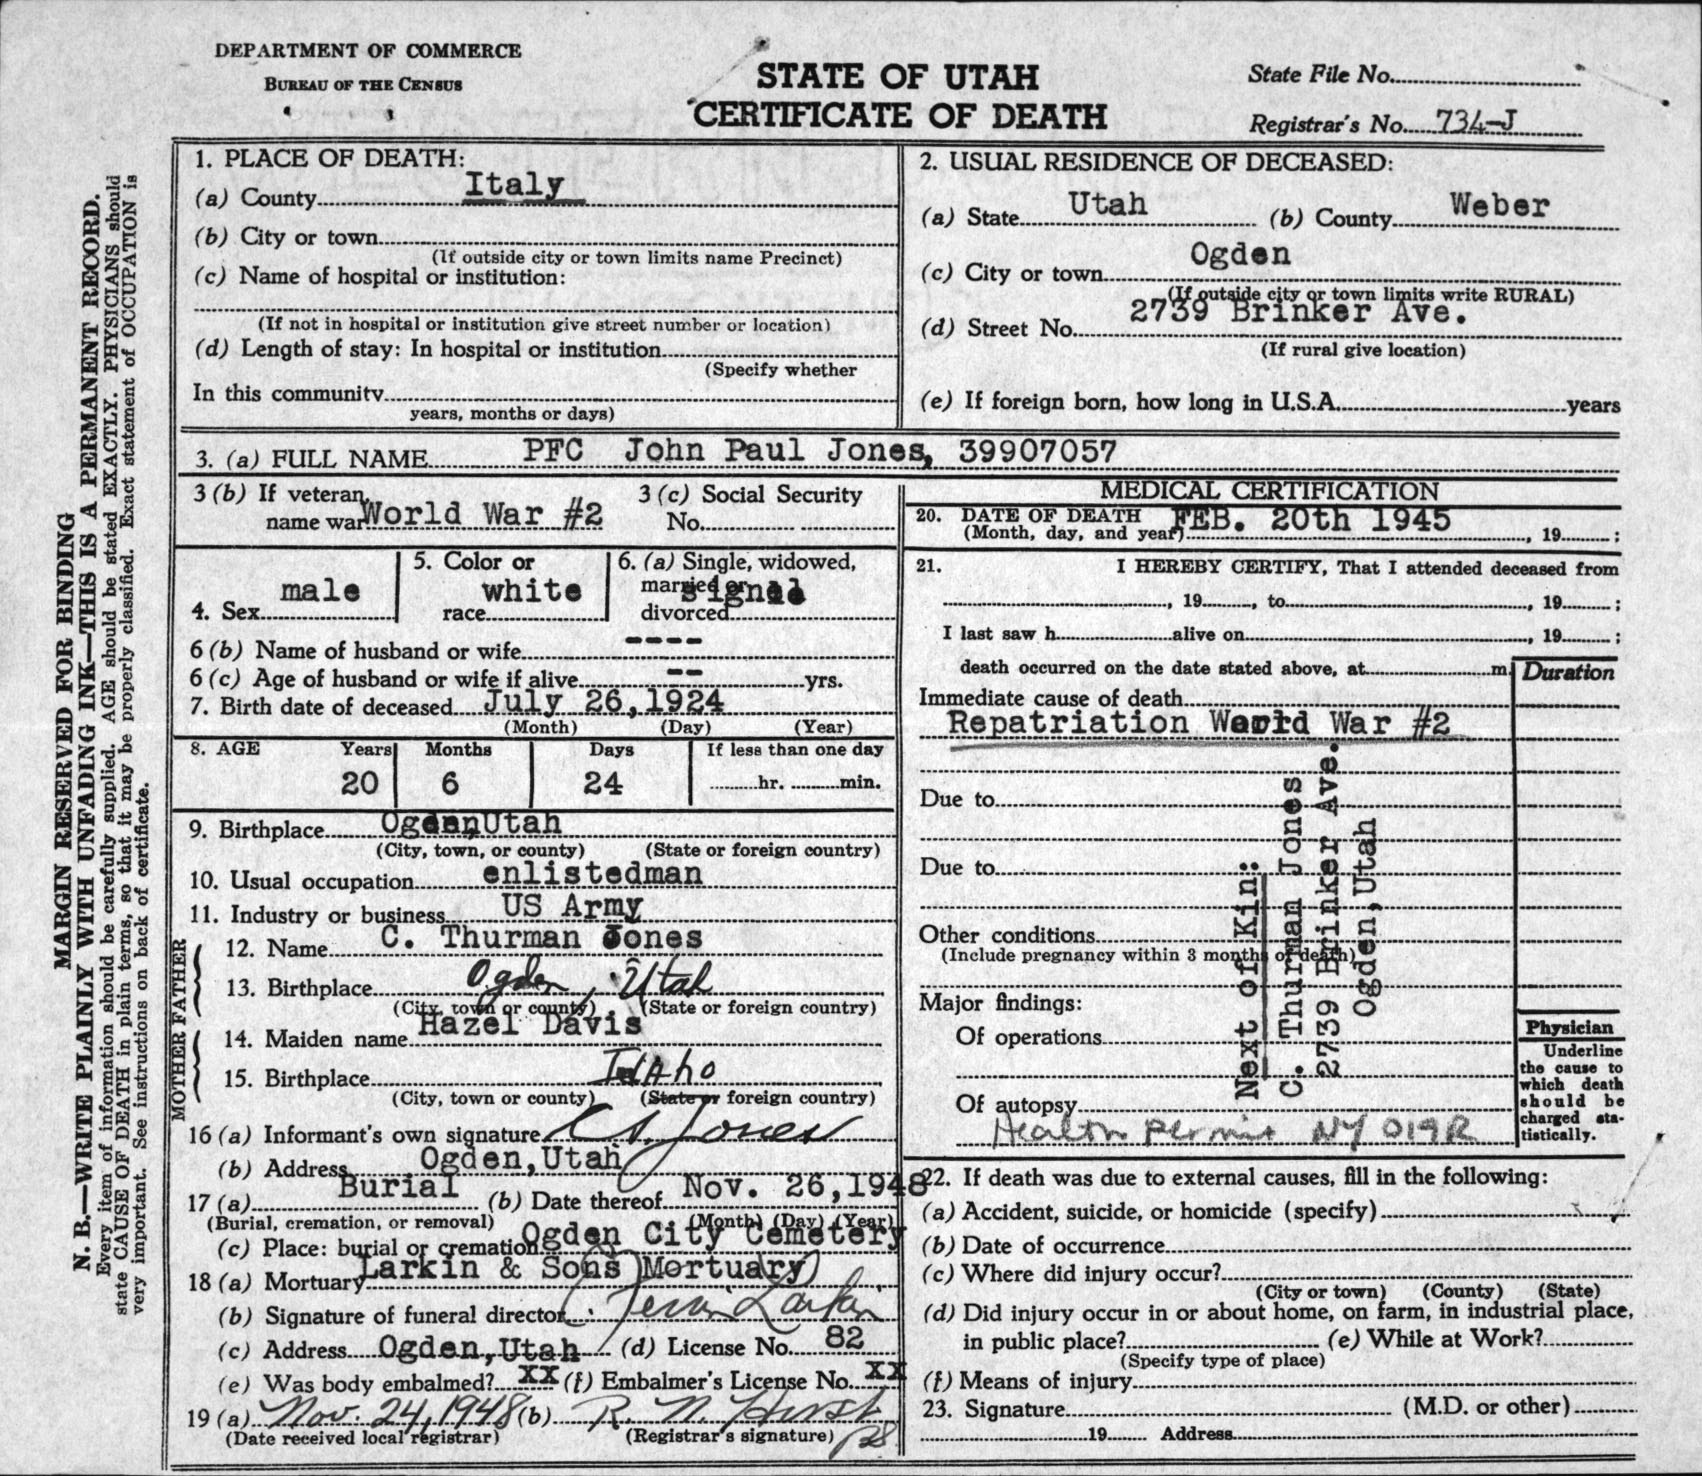 DEPARTMENT OF COMMERCE
BUREAU OF THE CENSUS
STATE OF UTAH
CERTIFICATE OF DEATH
State File No.
Registrar's No. 734-J
MARGIN RESERVED FOR BINDING
N. B.—WRITE PLAINLY WITH UNFADING INK—THIS IS A PERMANENT RECORD.
Every item of information should be carefully supplied. AGE should be stated EXACTLY. PHYSICIANS should
state CAUSE OF DEATH in plain terms, so that it may be properly classified. Exact statement of OCCUPATION is
very important. See instructions on back of certificate.
1. PLACE OF DEATH:
(a) County Italy
(b) City or town
(If outside city or town limits name Precinct)
(c) Name of hospital or institution:
(If not in hospital or institution give street number or location)
(d) Length of stay: In hospital or institution
(Specify whether
In this community
years, months or days)
2. USUAL RESIDENCE OF DECEASED:
(a) State Utah (b) County Weber
(c) City or town Ogden
(If outside city or town limits write RURAL)
(d) Street No. 2739 Brinker Ave.
(If rural give location)
(e) If foreign born, how long in U.S.A. years
3. (a) FULL NAME PFC John Paul Jones, 39907057
3 (b) If veteran, name war World War #2
3 (c) Social Security No.
4. Sex male
5. Color or race white
6. (a) Single, widowed, married or divorced
6 (b) Name of husband or wife ----
6 (c) Age of husband or wife if alive -- yrs.
7. Birth date of deceased July 26,1924
(Month) (Day) (Year)
8. AGE Years Months Days If less than one day
20 6 24 hr. min.
9. Birthplace Ogden,Utah
(City, town, or county) (State or foreign country)
10. Usual occupation enlistedman
11. Industry or business US Army
FATHER
12. Name C. Thurman Jones
13. Birthplace Ogden, Utah
(City, town or county) (State or foreign country)
MOTHER
14. Maiden name Hazel Davis
15. Birthplace Idaho
(City, town or county) (State or foreign country)
16 (a) Informant's own signature Jones
(b) Address Ogden,Utah
17 (a) Burial (b) Date thereof Nov. 26,1948
(Burial, cremation, or removal) (Month) (Day) (Year)
(c) Place: burial or cremation Ogden City Cemetery
18 (a) Mortuary Larkin & Sons Mortuary
(b) Signature of funeral director Larkin
(c) Address Ogden,Utah (d) License No. 82
(e) Was body embalmed? xx (f) Embalmer's License No. xx
19 (a) Nov. 24, 1948 (b) R. N. Hirst
(Date received local registrar) (Registrar's signature)
MEDICAL CERTIFICATION
20. DATE OF DEATH FEB. 20th 1945
(Month, day, and year) , 19 ;
21. I HEREBY CERTIFY, That I attended deceased from
, 19 , to , 19 ;
I last saw h alive on , 19 ;
death occurred on the date stated above, at m.
Duration
Immediate cause of death
Repatriation World War #2
Due to
Due to
Other conditions
(Include pregnancy within 3 months of death)
Major findings:
Of operations
Of autopsy
Health Permit NY 019R
Next of Kin:
C. Thurman Jones
2739 Brinker Ave.
Ogden,Utah
Physician
Underline
the cause to
which death
should be
charged sta-
tistically.
22. If death was due to external causes, fill in the following:
(a) Accident, suicide, or homicide (specify)
(b) Date of occurrence
(c) Where did injury occur?
(City or town) (County) (State)
(d) Did injury occur in or about home, on farm, in industrial place,
in public place? (e) While at Work?
(Specify type of place)
(f) Means of injury
23. Signature (M.D. or other)
19 Address